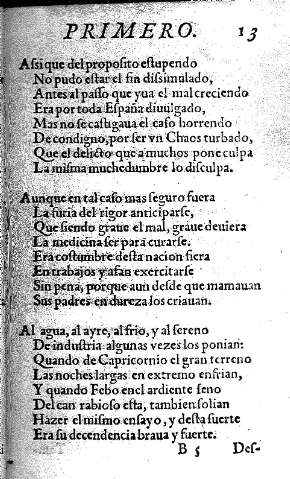 PRIMERO. 13
Assi que del proposito estupendo
No pudo estar el fin dissimulado,
Antes al passo que yua el mal creciendo
Era por toda España diuulgado,
Mas no se castigaua el caso horrendo
De condigno, por ser vn Chaos turbado,
Que el delicto que a muchos pone culpa
La misma muchedumbre lo disculpa.
Aunque en tal caso mas seguro fuera
La furia del rigor anticiparse,
Que siendo graue el mal, graue deuiera
La medicina ser para curarse.
Era costumbre desta nacion fiera
En trabajos y afan exercitarse
Sin pena, porque aun desde que mamauan
Sus padres en dureza los criauan.
Al agua, al ayre, al frio, y al sereno
De industria algunas vezes los ponian:
Quando de Capricornio el gran terreno
Las noches largas en extremo enfrian,
Y quando Febo en el ardiente seno
Del can rabioso esta, tambien solian
Hazer el mismo ensayo, y desta suerte
Era su decendencia braua y fuerte.
B 5 Des-